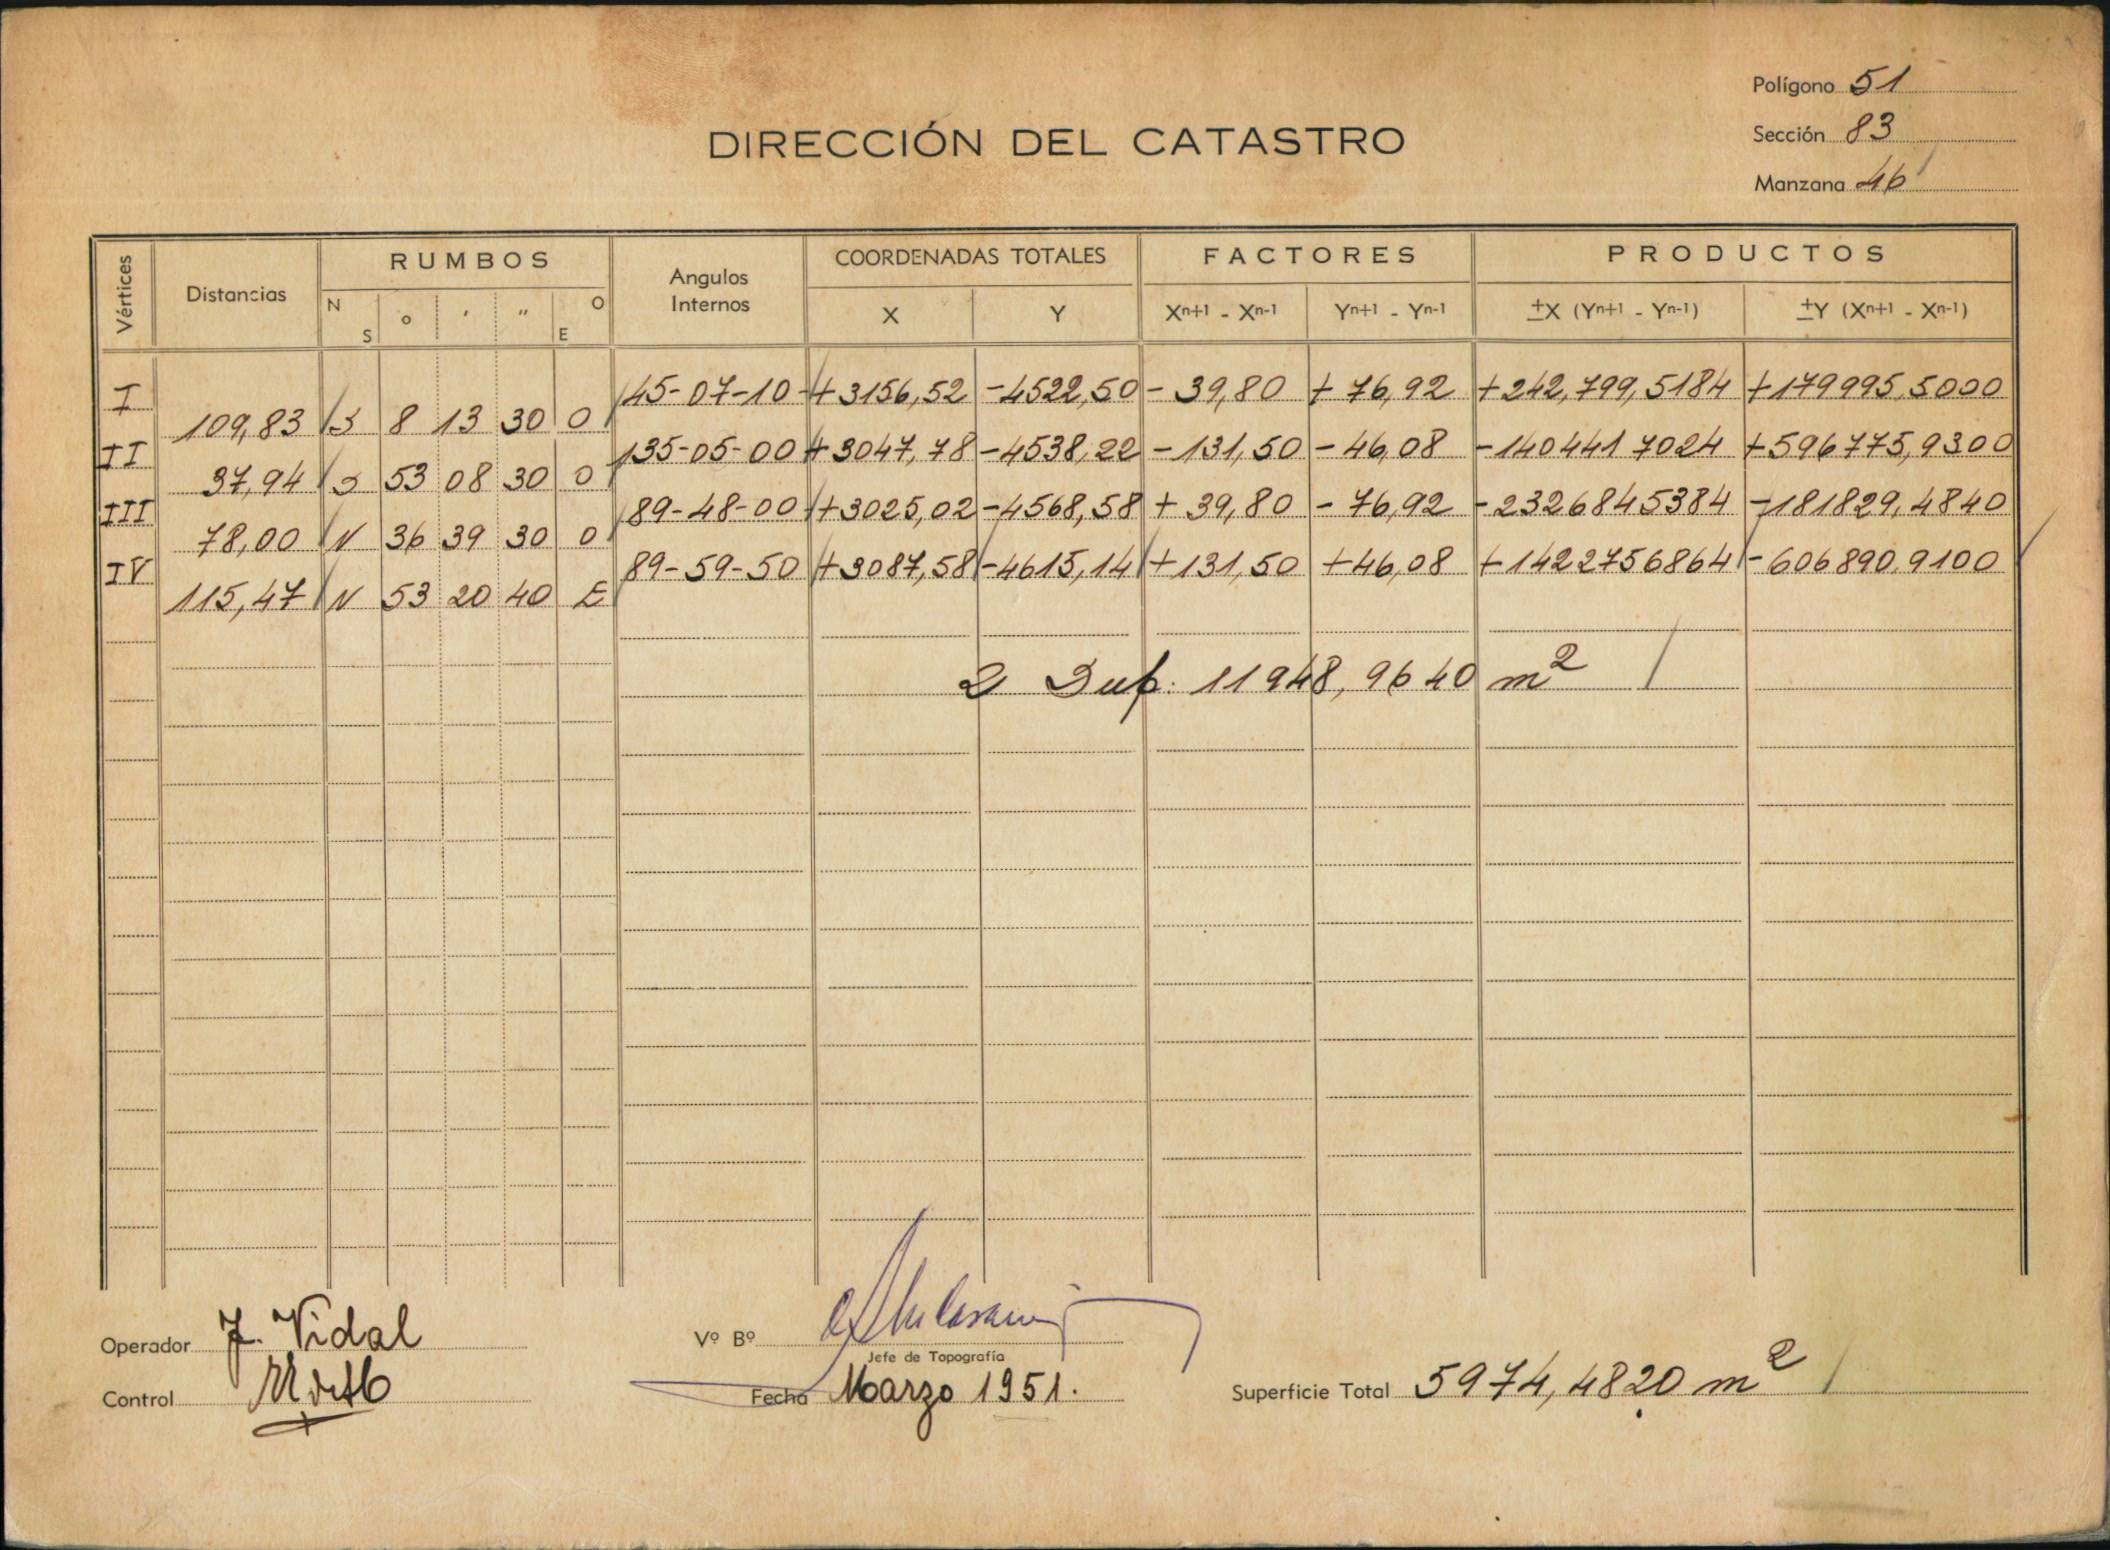 Polígono 51
DIRECCIÓN DEL CATASTRO
Sección 83
Manzana 46
Vértices Distancias RUMBOS Angulos Internos COORDENADAS TOTALES FACTORES PRODUCTOS
N S ° ' " O E X Y Xn+1 - Xn-1 Yn+1 - Yn-1 ±X (Yn+1 - Yn-1) ±Y (Xn+1 - Xn-1)
I 45-07-10 +3156,52 -4522,50 - 39,80 + 76,92 +242,799,5184 +179995,5000
109,83 S 8 13 30 O
II 135-05-00 +3047,78 -4538,22 -131,50 -46,08 -140441 7024 +596775,9300
37,94 S 53 08 30 O
III 89-48-00 +3025,02 -4568,58 + 39,80 - 76,92 -2326845384 -181829,4840
78,00 N 36 39 30 O
IV 89-59-50 +3087,58 -4615,14 +131,50 +46,08 +1422756864 -606890.9100
115,47 N 53 20 40 E
2 Sup. 11948,9640 m2
Operador J. Vidal
Vº Bº
Jefe de Topografía
Control
Fecha Marzo 1951.
Superficie Total 5974,4820 m2